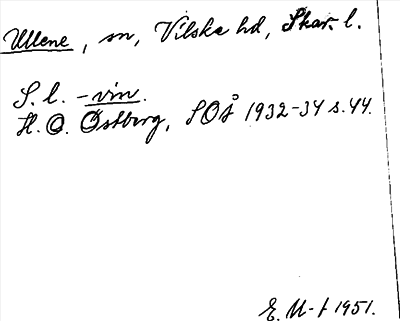 Ullene, sn, Vilske hd, Skar. l.
S. l. -vin.
H. O. Östberg, SOÅ 1932-34 s. 44.
E. U-t 1951.